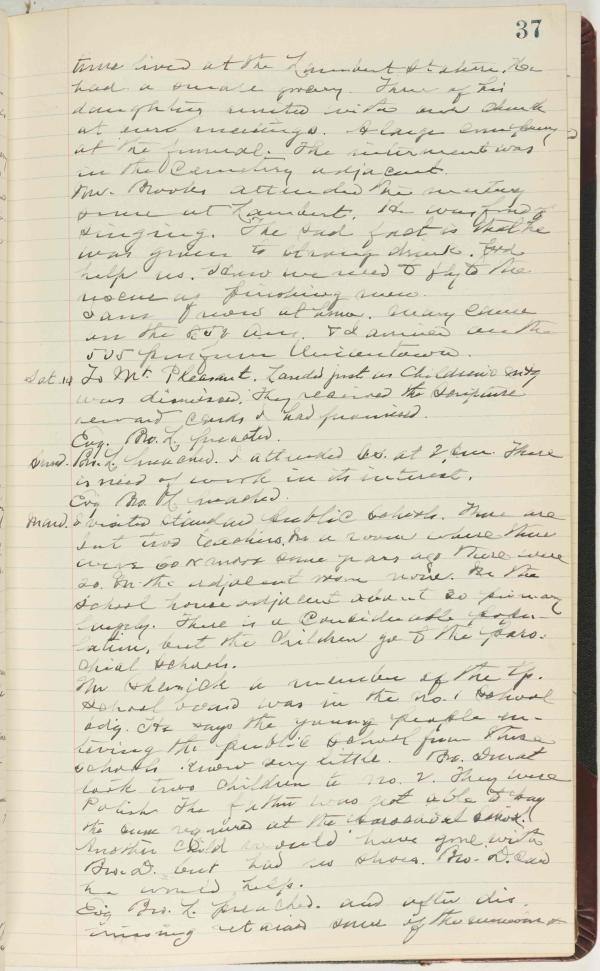 37
time lived at the Lambert Station. He
had a small grocery. Three of his
daughters united with our church
at our meetings. A large company
at the funeral. The interment was
in the Cemetery adjacent.
Mr. Brooks attended the meeting
some at Lambert. He was fond of
singing. The sad fact is that he
was given to strong drink. God
help us. How we need to fly to the
rescue of perishing men.
I am now at home. Mary came
on the 8 50 and I arrived on the
5 05 from Uniontown.
Sat. 14 To Mt. Pleasant. Landed just as Children's mtg
was dismissed. They received the scripture
reward cards I had promised.
Evg. Bro. L. preached.
Sund. Bro. L. preached. I attended at 2, There
is need of work in its interest.
Evg Bro. L. preached.
Mond. I visited Standard public schools. There are
but two teachers. In a room where there
were 60 or more some years ago there were
20. In the adjacent room none. In the
school house adjacent about 20 primary
There is a considerable popu-
lation, but the children go to the paro-
chial schools.
Mr a member of the tp.
school board was in the No. 1 school
bdg. He says the young people en-
tering the public school from these
schools know very little. Bro.
took two children to No. 2. They were
Polish. The father was not able to pay
the sum required at the Parochial School.
Another child would have gone with
Bro. D. but had no shoes. Bro. D. said
he would help.
Evg Bro. L. preached. and after dis-
missing retained some of the &